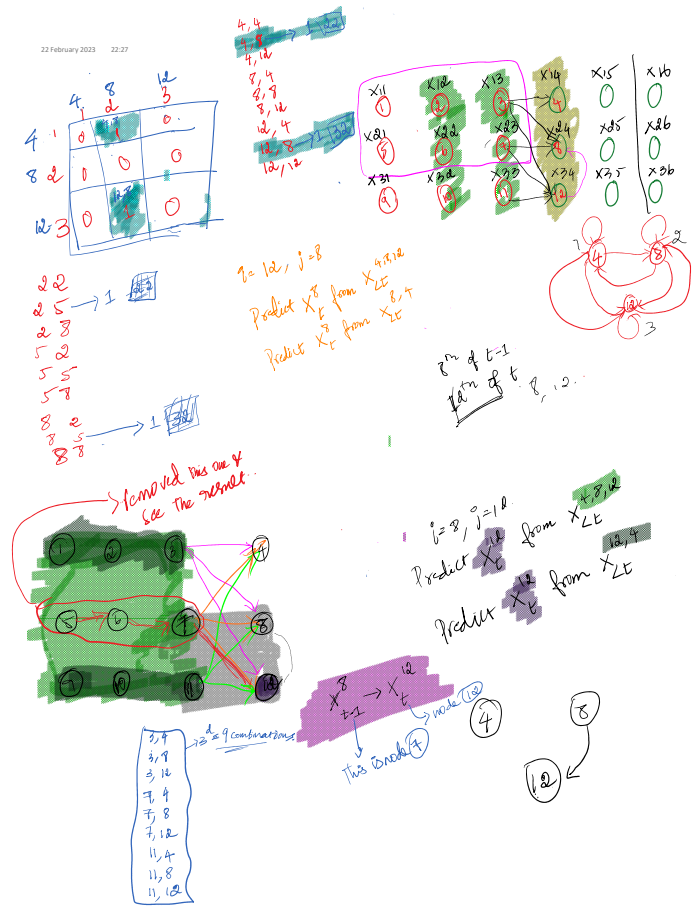 22 February 2023 22:27
4, 4
4, 8 → 22
4, 12
8, 4
8, 8
8, 12
12, 4
12, 8 → 1 32
12, 12
4 8 12
1 2 3
4 1 0 1 0
8 2 0 0 0
12 3 0 1 0
X11 X12 X13 X14 X15 X16
1 2 3 4
X21 X22 X23 X24 X25 X26
5 6 7 8
X31 X32 X33 X34 X35 X36
9 10 11 12
1 4 8 2
12
3
2 2
2 5 → 1 22
2 8
5 2
5 5
5 8
8 2
8 5 → 1 32
8 8
i = 12, j = 8
Predict X^8_t from X^4,8,12_<t
Predict X^8_t from X^8,4_<t
8th of t-1
12th of t
8, 12
removed this one &
see the result..
1 2 3 4
5 6 7 8
10 11 12
i = 8, j = 12
Predict X^12_t from X^4,8,12_<t
Predict X^12_t from X^12,4_<t
X^8_t-1 → X^12_t
node 12
This is node 7
4 8
12
3,4 → 3^2 = 9 combinations
3,8
3,12
7,4
7,8
7,12
11,4
11,8
11,12